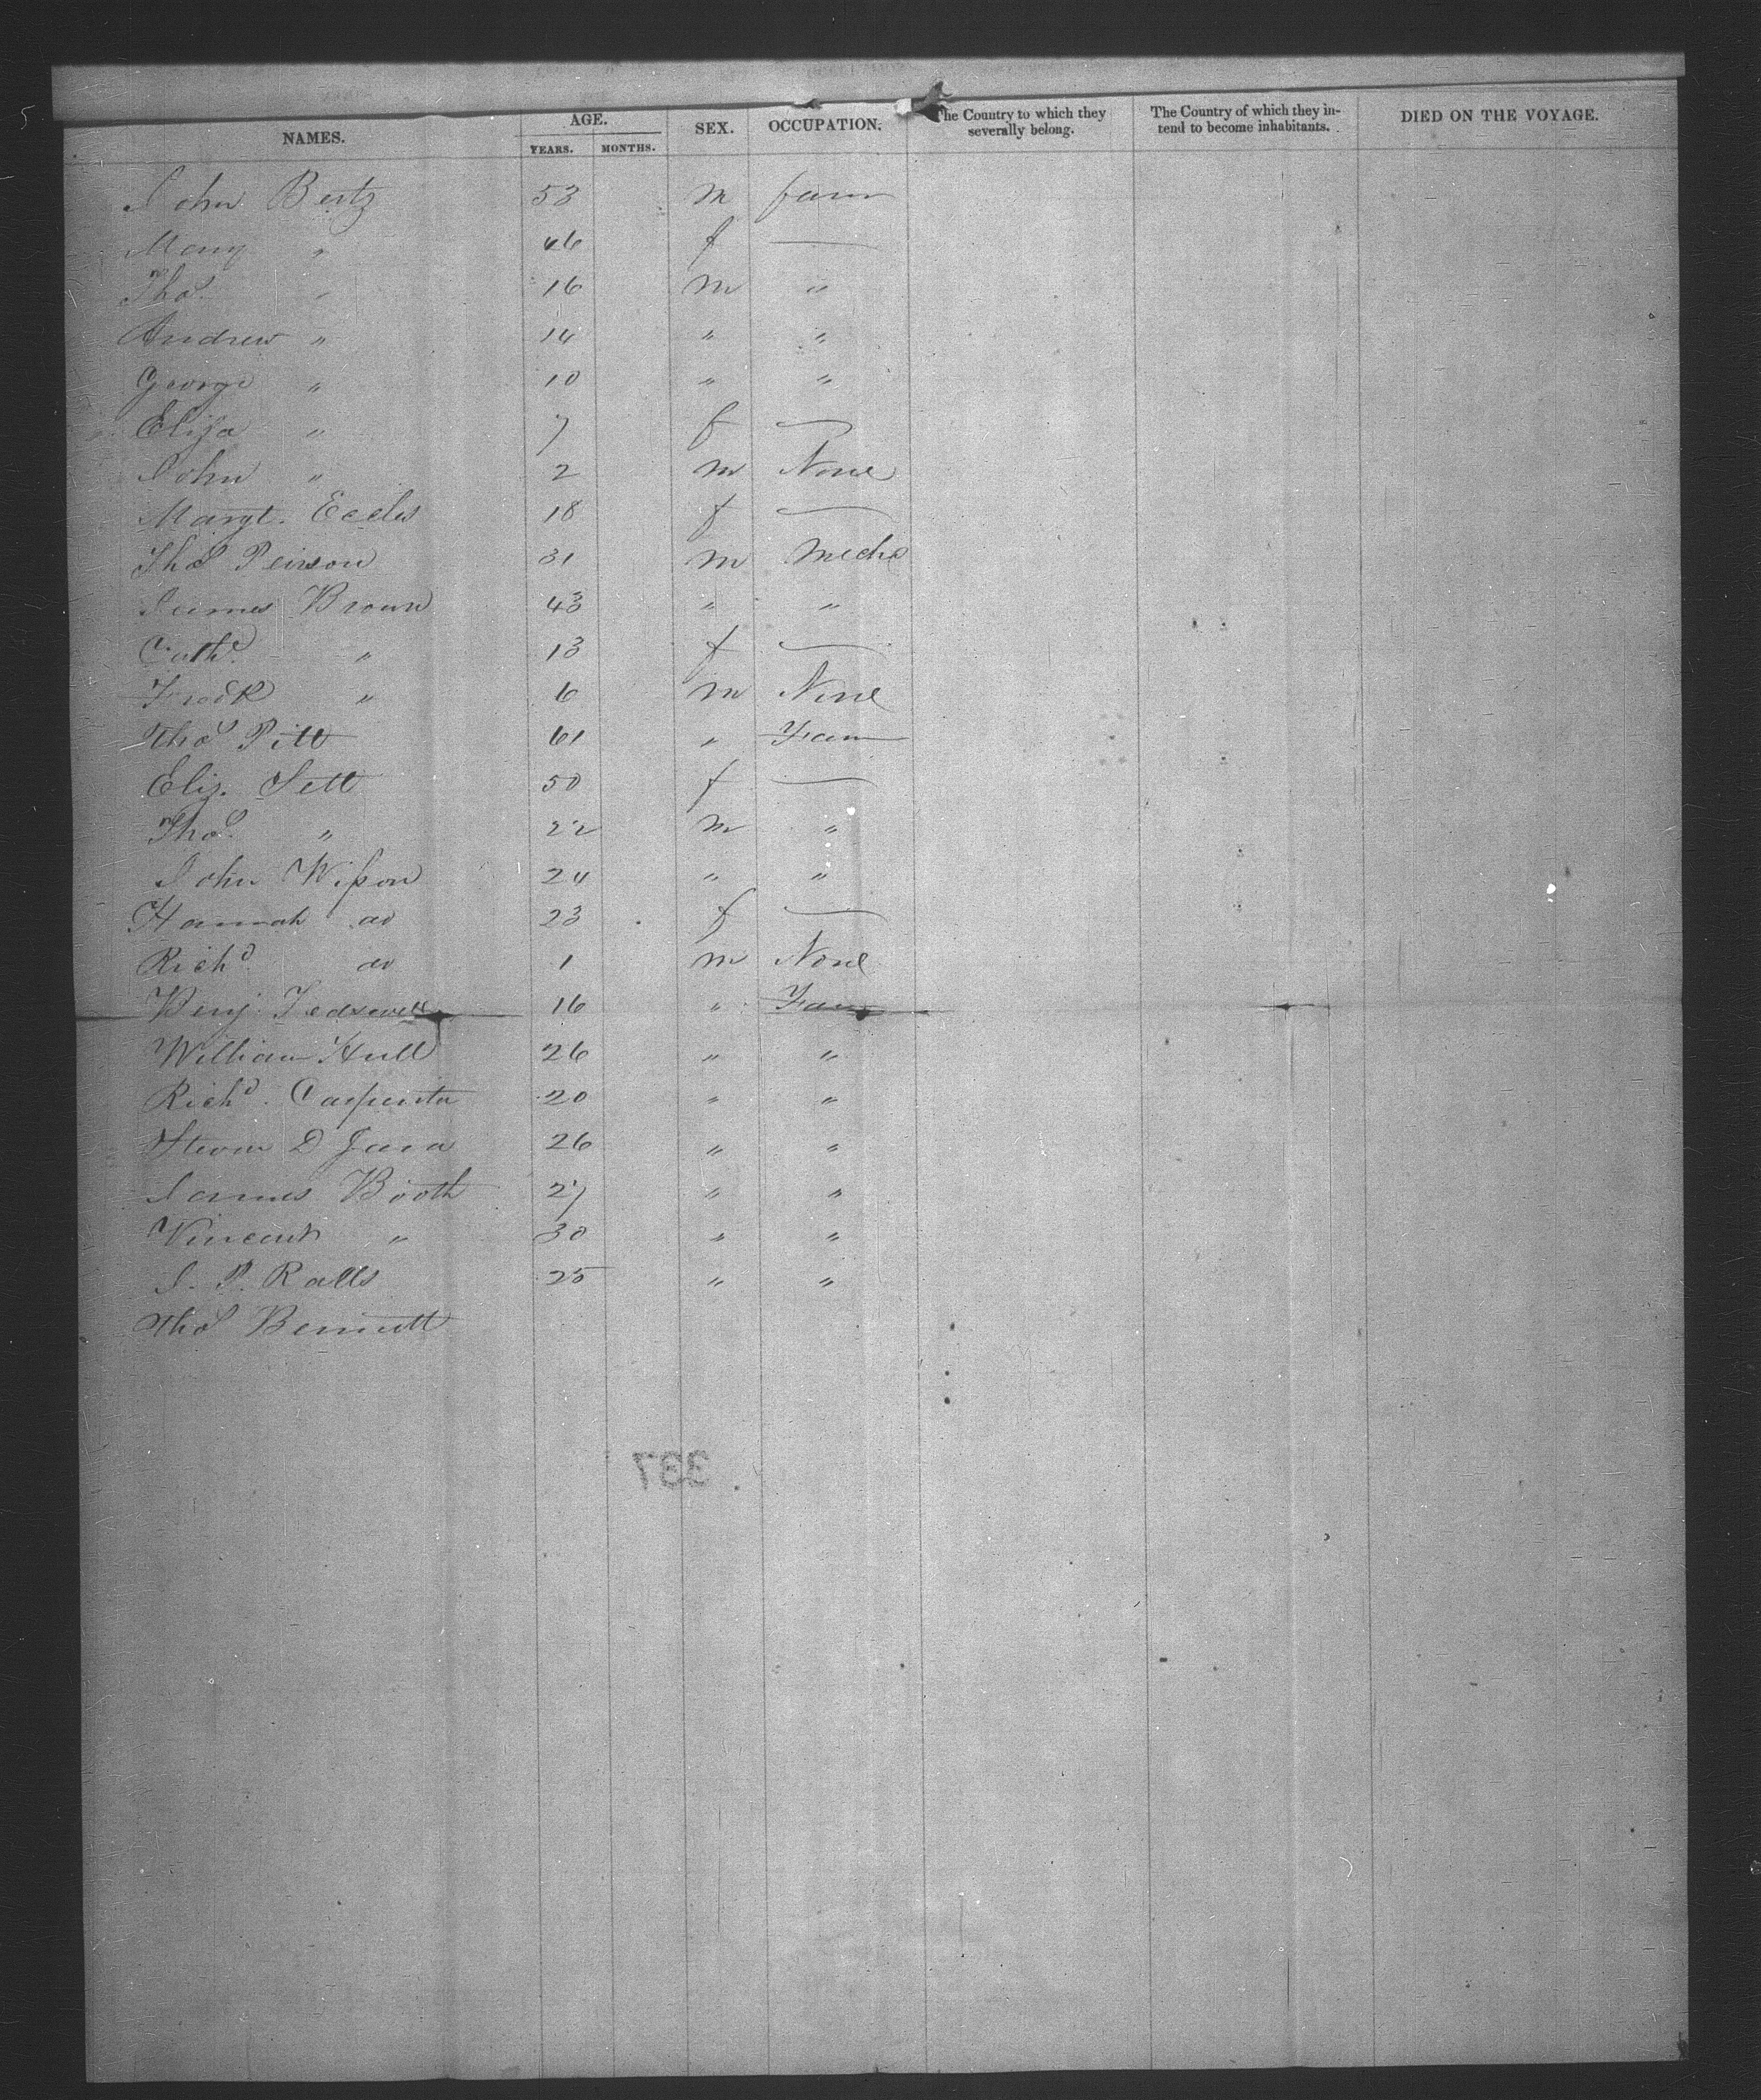 NAMES. AGE. YEARS. MONTHS. SEX. OCCUPATION. The Country to which they severally belong. The Country of which they intend to become inhabitants. DIED ON THE VOYAGE.
John Bertz 53 m farm
Mary " 46 f —
Thos. " 16 m "
Andrew " 14 " "
George " 10 " "
Eliza " 7 f —
John " 2 m None
Margt. Eccles 18 f —
Thos Peirson 31 m Mecha
James Brown 43 " "
Cath. " 13 f —
Fredk " 6 m None
Thos Pitt 61 " Farm
Eliz. Sett 50 f —
Thos. " 22 m "
John Wilson 24 " "
Hannah do 23 f —
Richd. do 1 m None
Benj. 16 " Farm
William Hull 26 " "
Richd. Carpenter 20 " "
D 26 " "
James Booth 27 " "
Vincent " 30 " "
J. P. Ralls 25 " "
Thos Bennett
337